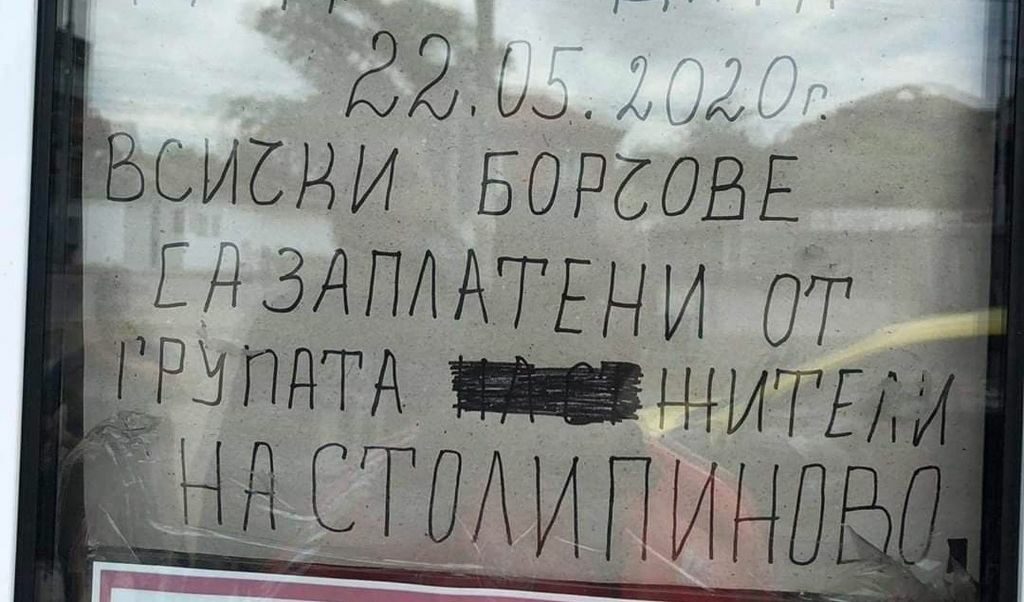 22.05.2020г.
ВСИЧКИ БОРЧОВЕ
СА ЗАПЛАТЕНИ ОТ
ГРУПАТА ЖИТЕЛИ
НА СТОЛИПИНОВО.